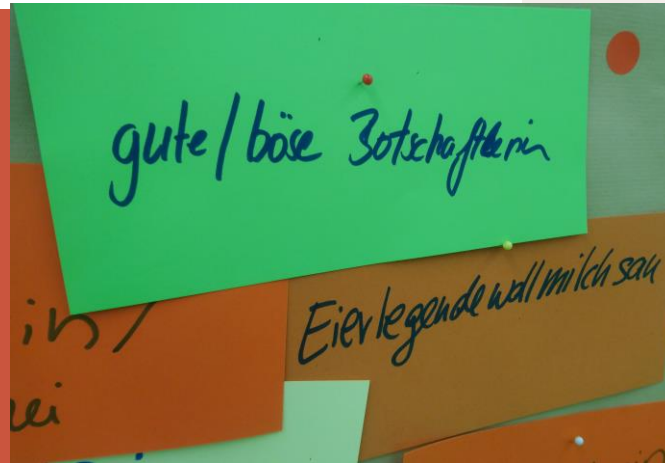 gute/böse Botschafterin
Eierlegendewollmilchsau
in/
ei